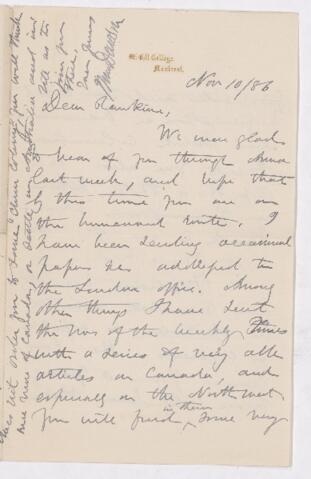 McGill College,
Montreal.
Nov 10/86
Dear Rankine,
We were glad
to hear of you through Anna
last week, and hope that
by this time you are on
the homeward route. I
have been sending occasional
papers &c addressed to
the London office. Among
other things I have sent
the Nos of the weekly Times
with a series of very able
articles on Canada, and
especially on the Northwest
you will find in them some very
does not order you to some other colony you will think
nice views of Canada, or settle in Australia and
us to
join you
there,
Ever yours